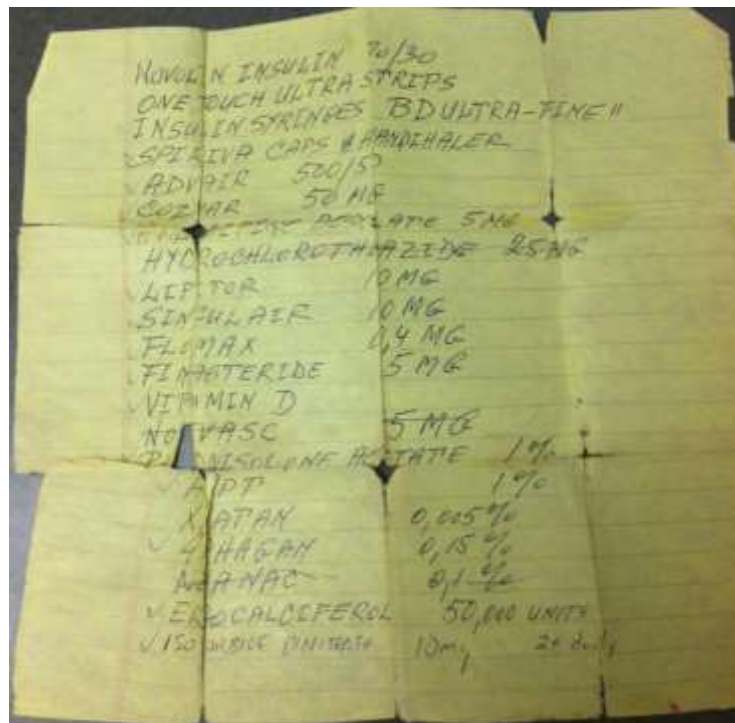 NOVOLIN INSULIN 70/30
ONE TOUCH ULTRA STRIPS
INSULIN SYRINGES BD ULTRA-FINE II
SPIRIVA CAPS & HANDIHALER
✓ ADVAIR 500/50
COZAAR 50 MG
5 MG
HYDROCHLOROTHIAZIDE 25 MG
✓ LIPITOR 10 MG
SINGULAIR 10 MG
✓ FLOMAX 0,4 MG
✓ FINASTERIDE 5 MG
✓ VITAMIN D
NORVASC 5 MG
PREDNISOLONE ACETATE 1%
✓ 1%
XALATAN 0,005%
✓ 0,15%
0,1%
✓ ERGOCALCIFEROL 50,000 UNITS
✓ ISOSORBIDE DINITRATE 10mg 2x daily